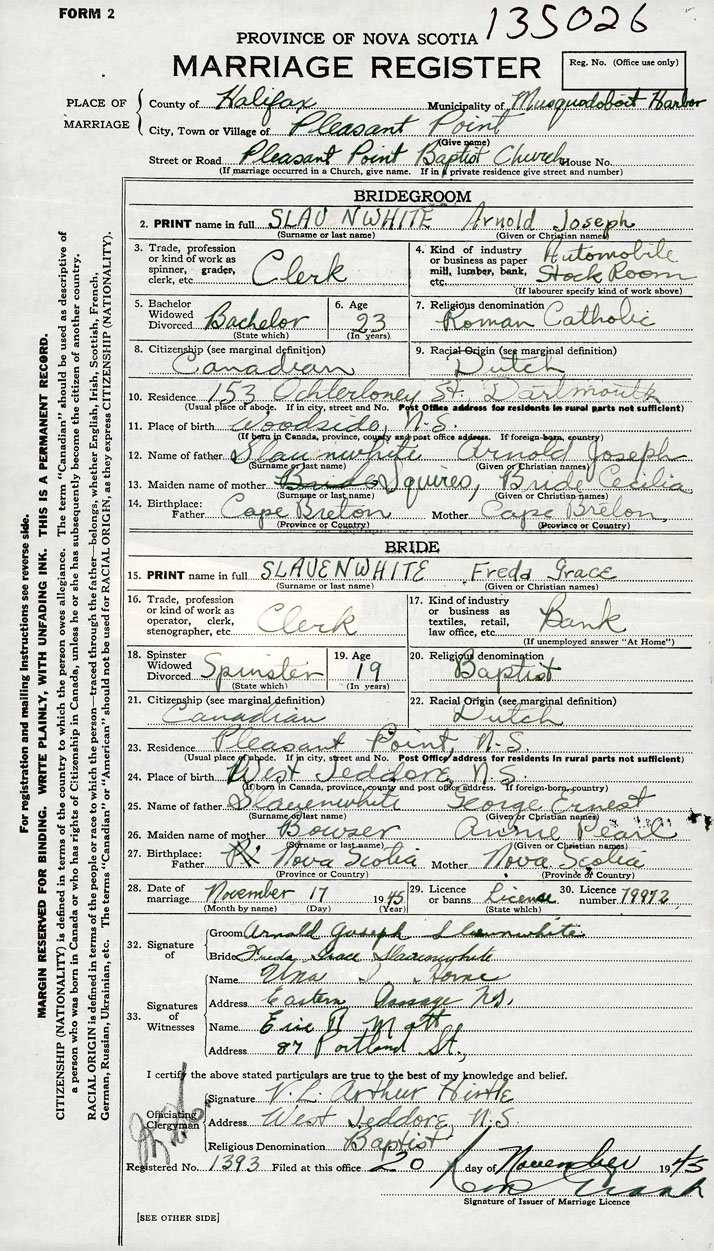 FORM 2
135026
PROVINCE OF NOVA SCOTIA
MARRIAGE REGISTER
Reg. No. (Office use only)
PLACE OF MARRIAGE
County of Halifax Municipality of Musquodoboit Harbor
City, Town or Village of Pleasant Point
(Give name)
Street or Road Pleasant Point Baptist Church House No.
(If marriage occurred in a Church, give name. If in a private residence give street and number)
BRIDEGROOM
2. PRINT name in full SLAUNWHITE Arnold Joseph
(Surname or last name) (Given or Christian name)
3. Trade, profession or kind of work as spinner, grader, clerk, etc. Clerk
4. Kind of industry or business as paper mill, lumber, bank, etc. Automobile Stock Room
(If labourer specify kind of work above)
5. Bachelor Widowed Divorced Bachelor
(State which)
6. Age 23
(In years)
7. Religious denomination Roman Catholic
8. Citizenship (see marginal definition) Canadian
9. Racial Origin (see marginal definition) Dutch
10. Residence 153 Ochterloney St. Dartmouth
(Usual place of abode. If in city, street and No. Post Office address for residents in rural parts not sufficient)
11. Place of birth Woodside, N.S.
(If born in Canada, province, county and post office address. If foreign-born, country)
12. Name of father Slaunwhite Arnold Joseph
(Surname or last name) (Given or Christian names)
13. Maiden name of mother Squires, Bride Cecilia
(Surname or last name) (Given or Christian names)
14. Birthplace: Father Cape Breton Mother Cape Breton
(Province or Country) (Province or Country)
BRIDE
15. PRINT name in full SLAVENWHITE Freda Grace
(Surname or last name) (Given or Christian names)
16. Trade, profession or kind of work as operator, clerk, stenographer, etc. Clerk
17. Kind of industry or business as textiles, retail, law office, etc. Bank
(If unemployed answer "At Home")
18. Spinster Widowed Divorced Spinster
(State which)
19. Age 19
(In years)
20. Religious denomination Baptist
21. Citizenship (see marginal definition) Canadian
22. Racial Origin (see marginal definition) Dutch
23. Residence Pleasant Point, N.S.
(Usual place of abode. If in city, street and No. Post Office address for residents in rural parts not sufficient)
24. Place of birth West Jeddore, N.S.
(If born in Canada, province, county and post office address. If foreign-born, country)
25. Name of father Slauenwhite George Ernest
(Surname or last name) (Given or Christian names)
26. Maiden name of mother Bowser Annie Pearl
(Surname or last name) (Given or Christian names)
27. Birthplace: Father Nova Scotia Mother Nova Scotia
(Province or Country) (Province or Country)
28. Date of marriage November 17 1945
(Month by name) (Day) (Year)
29. Licence or banns License
(State which)
30. Licence number 79972
32. Signature of
Groom Arnold Joseph Slaunwhite
Bride Freda Grace Slauenwhite
33. Signatures of Witnesses
Name Una
Address Eastern Passage N.S.
Name Eric
Address 87 Portland St.,
I certify the above stated particulars are true to the best of my knowledge and belief.
Officiating Clergyman
Signature Arthur
Address West Jeddore, N.S
Religious Denomination Baptist
Registered No. 1393 Filed at this office 20 day of November 1945
Signature of Issuer of Marriage Licence
[SEE OTHER SIDE]
For registration and mailing instructions see reverse side.
MARGIN RESERVED FOR BINDING. WRITE PLAINLY, WITH UNFADING INK. THIS IS A PERMANENT RECORD.
CITIZENSHIP (NATIONALITY) is defined in terms of the country to which the person owes allegiance. The term "Canadian" should be used as descriptive of
a person who was born in Canada or who has rights of Citizenship in Canada, unless he or she has subsequently become the citizen of another country.
RACIAL ORIGIN is defined in terms of the people or race to which the person—traced through the father—belongs, whether English, Irish, Scottish, French,
German, Russian, Ukrainian, etc. The terms "Canadian" or "American" should not be used for RACIAL ORIGIN, as they express CITIZENSHIP (NATIONALITY).